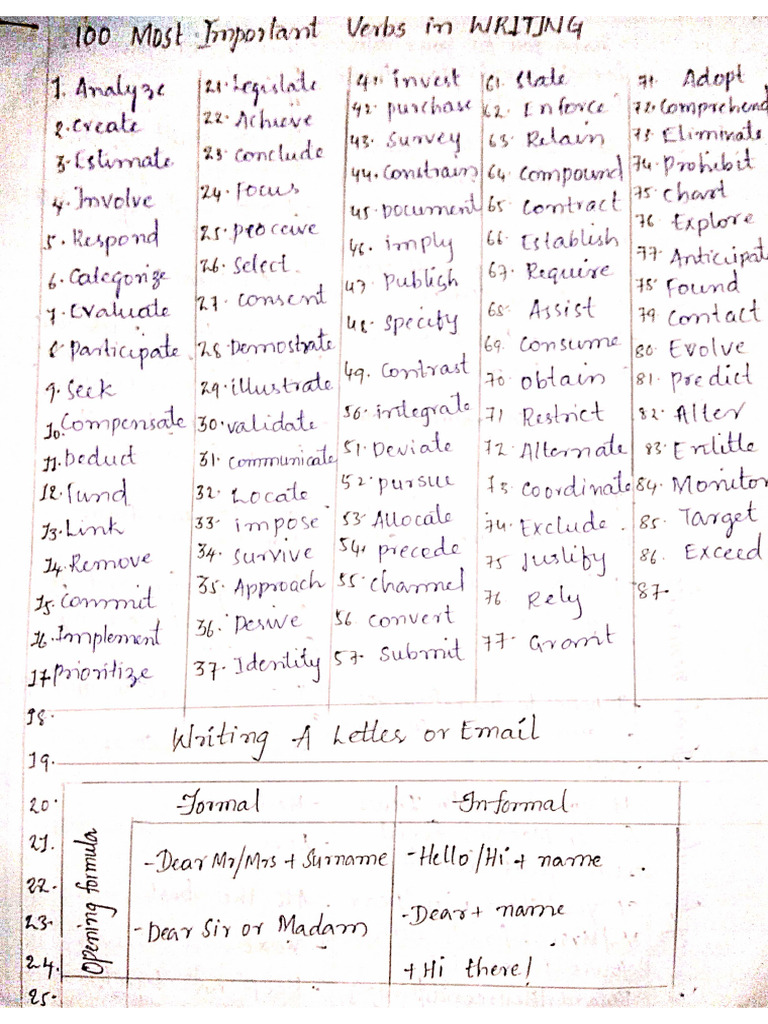 100 Most Important Verbs in WRITING
1. Analyze
2. Create
3. Estimate
4. Involve
5. Respond
6. Categorize
7. Evaluate
8. Participate
9. Seek
10. Compensate
11. Deduct
12. Fund
13. Link
14. Remove
15. Commit
16. Implement
17. Prioritize
18.
19.
21. Legislate
22. Achieve
23. Conclude
24. Focus
25. perceive
26. Select
27. Consent
28 Demostrate
29. illustrate
30. validate
31. communicate
32. Locate
33. impose
34. survive
35. Approach
36. Desive
37. Identity
41. invest
42. purchase
43. Survey
44. Constrain
45. Document
46. imply
47. Publish
48. specify
49. Contrast
50. integrate
51. Deviate
52. pursue
53. Allocate
54. precede
55. channel
56. convert
57. Submit
61. State
62. Enforce
63. Retain
64. Compound
65. Contract
66. Establish
67. Require
68. Assist
69. Consume
70. obtain
71. Restrict
72. Alternate
73. Coordinate
74. Exclude.
75. Justify
76. Rely
77. Grant
71. Adopt
72. Comprehend
73. Eliminate
74. Prohibit
75. Chart
76. Explore
77. Anticipat
78. Found
79. Contact
80. Evolve
81. predict
82. Alter
83. Entitle
84. Monitor
85. Target
86. Exceed
87.
Writing A Letter or Email
20.
21.
22.
23.
24.
25.
Opening formula
Formal
-Dear Mr/Mrs + Surname
-Dear Sir or Madam
Informal
-Hello/Hi + name
-Dear + name
+ Hi there!